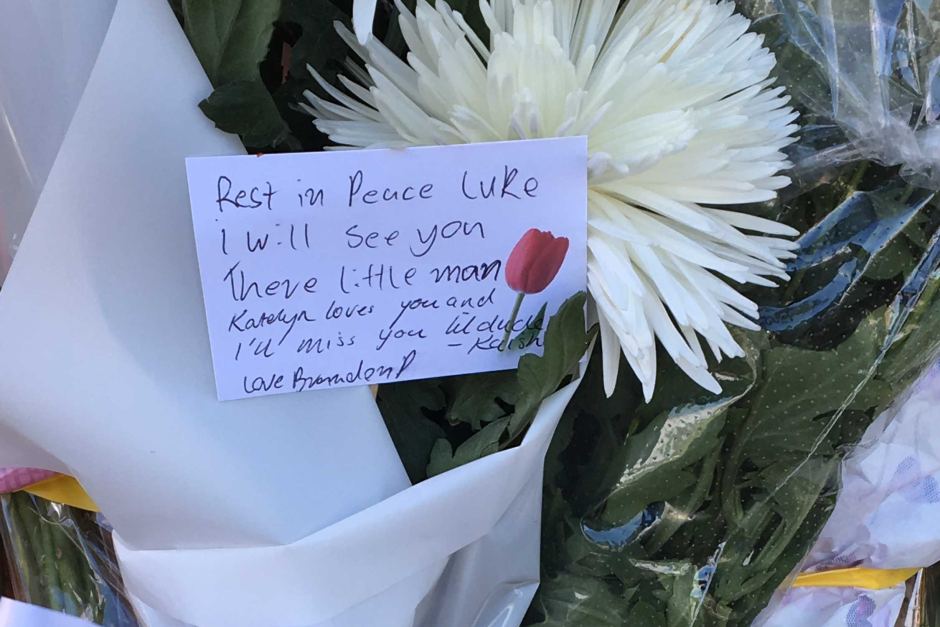 Rest in Peace LuKe
i will see you
There little man
Katelyn loves you and
I'll miss you lil dude
- Kaish
Love Brandon P